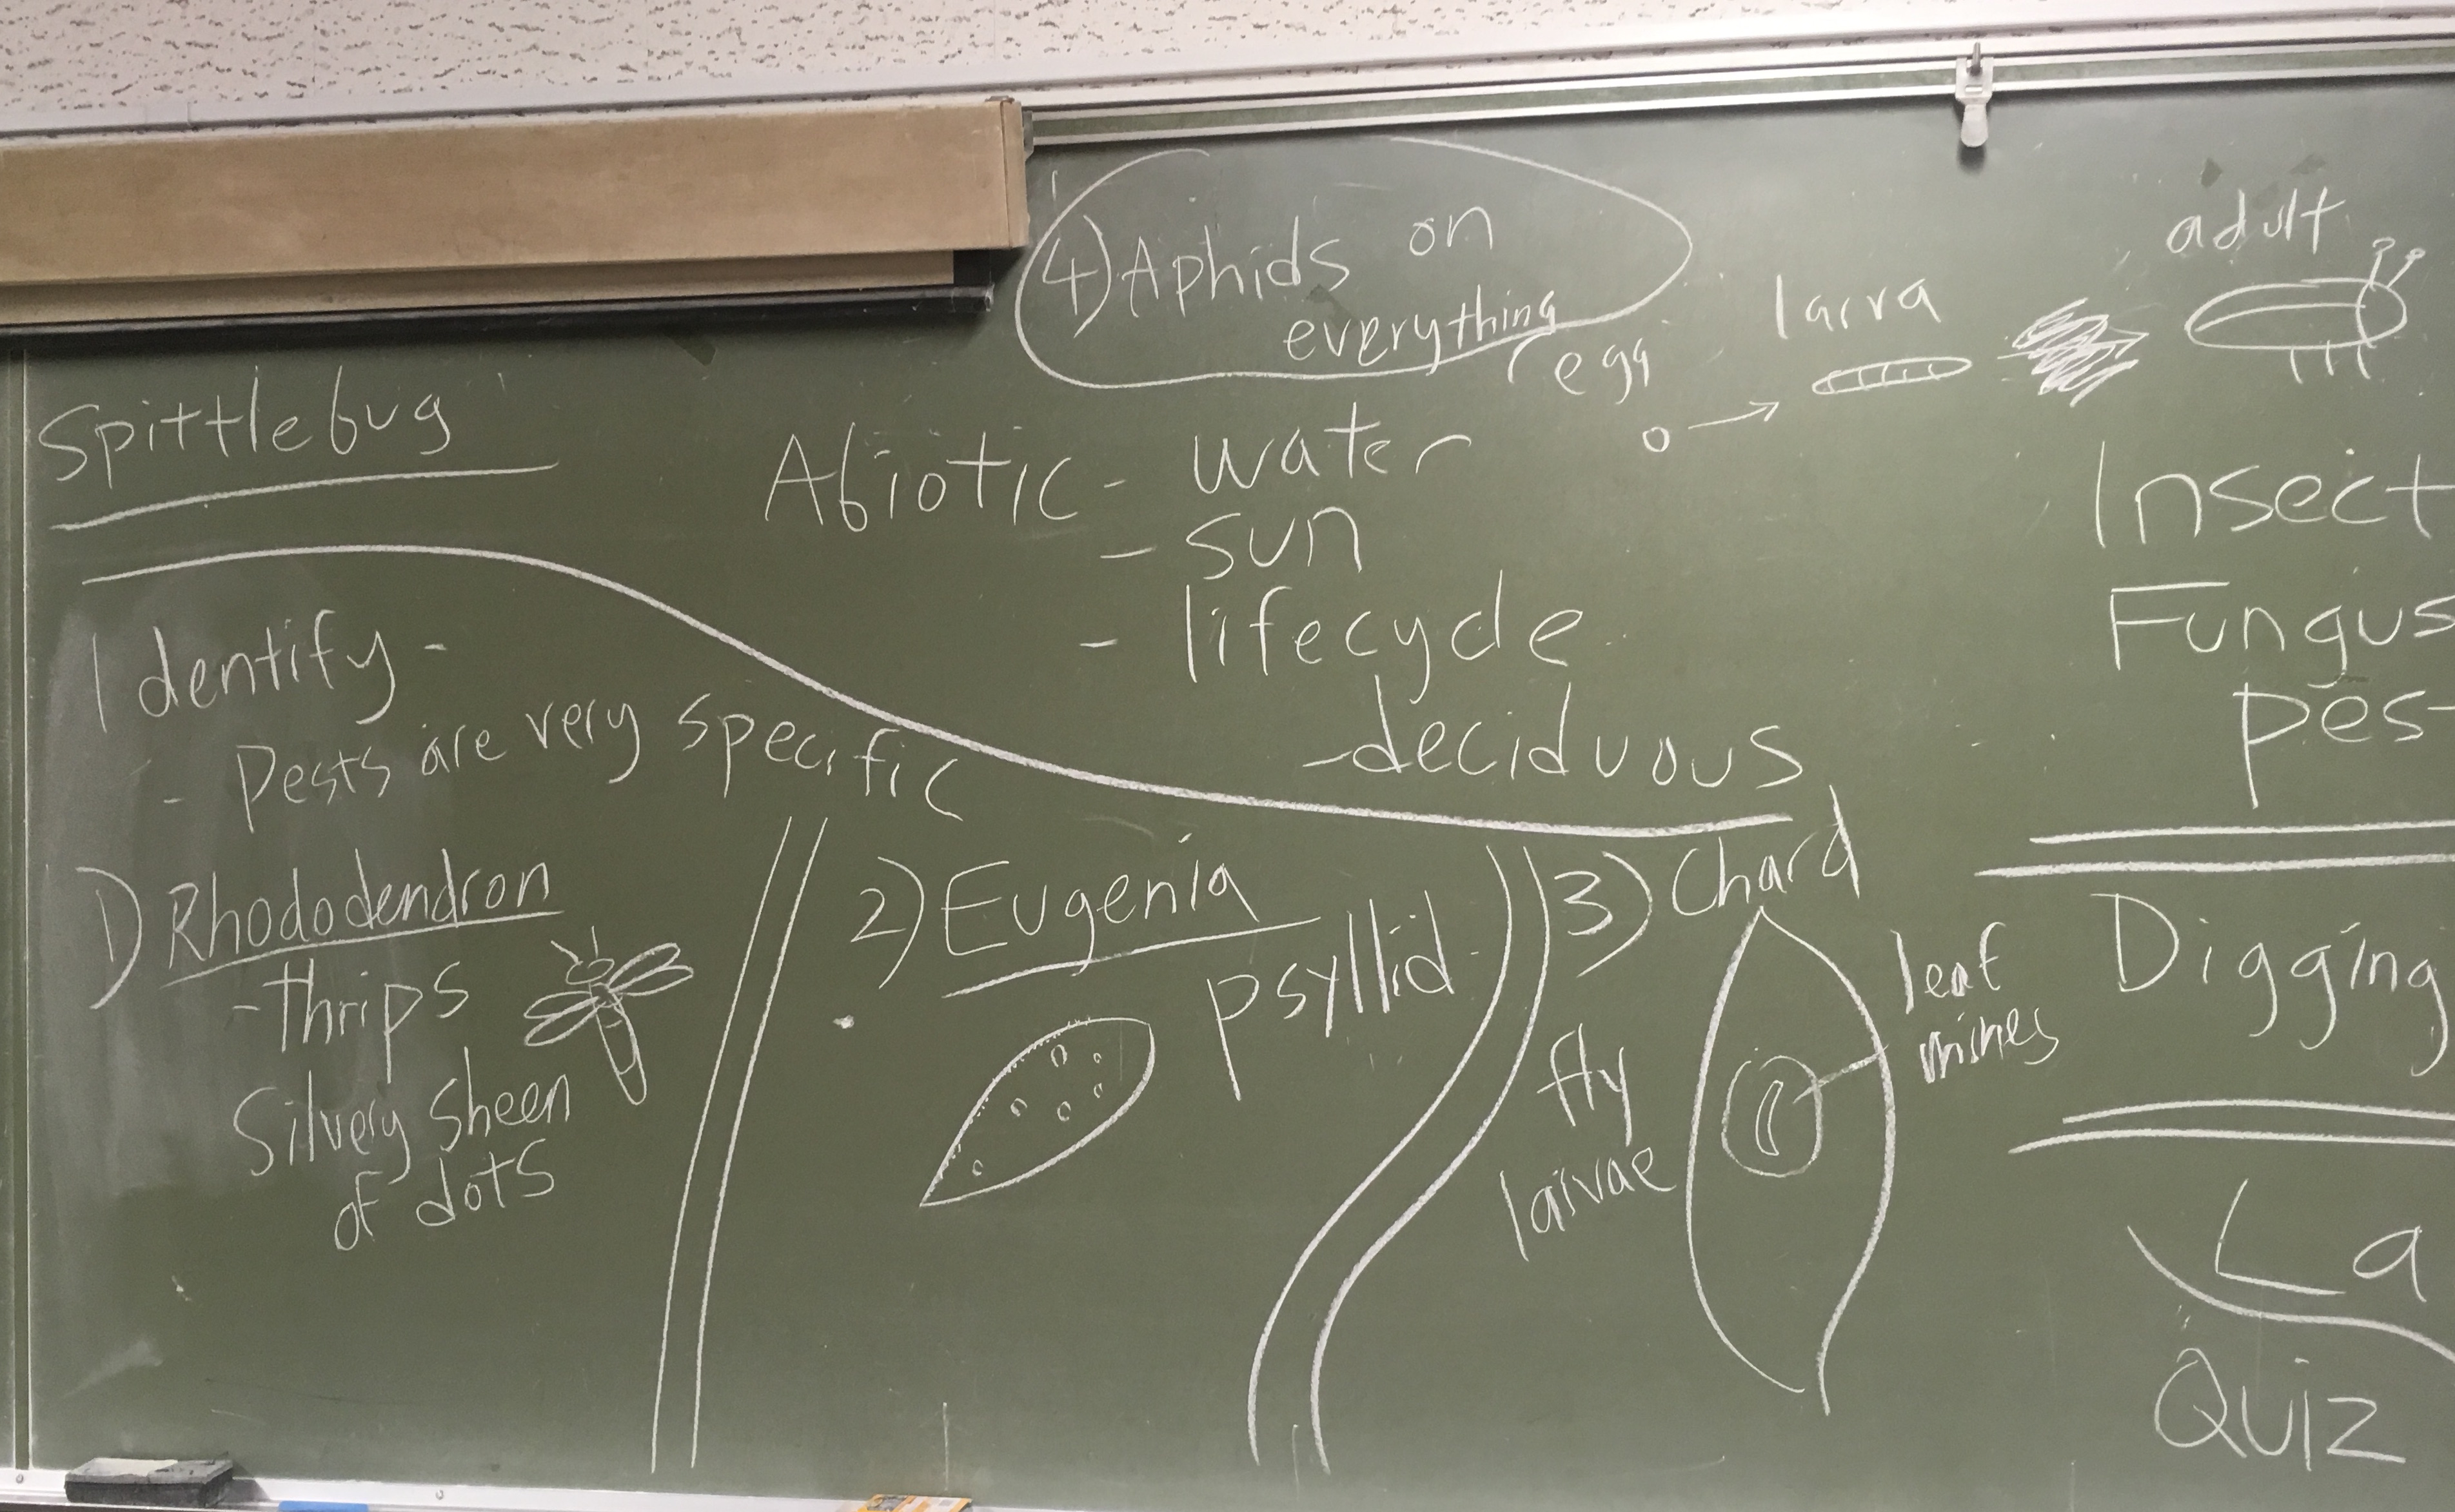 4) Aphids on
everything
egg
larva
adult
Spittlebug
Abiotic - water
- sun
- lifecycle
- deciduous
Insect
Fungus
pes
Identify -
- Pests are very specific
1) Rhododendron
- thrips
Silvery sheen
of dots
2) Eugenia
psyllid
3) Chard
leaf
fly
larvae
Digging
La
Quiz